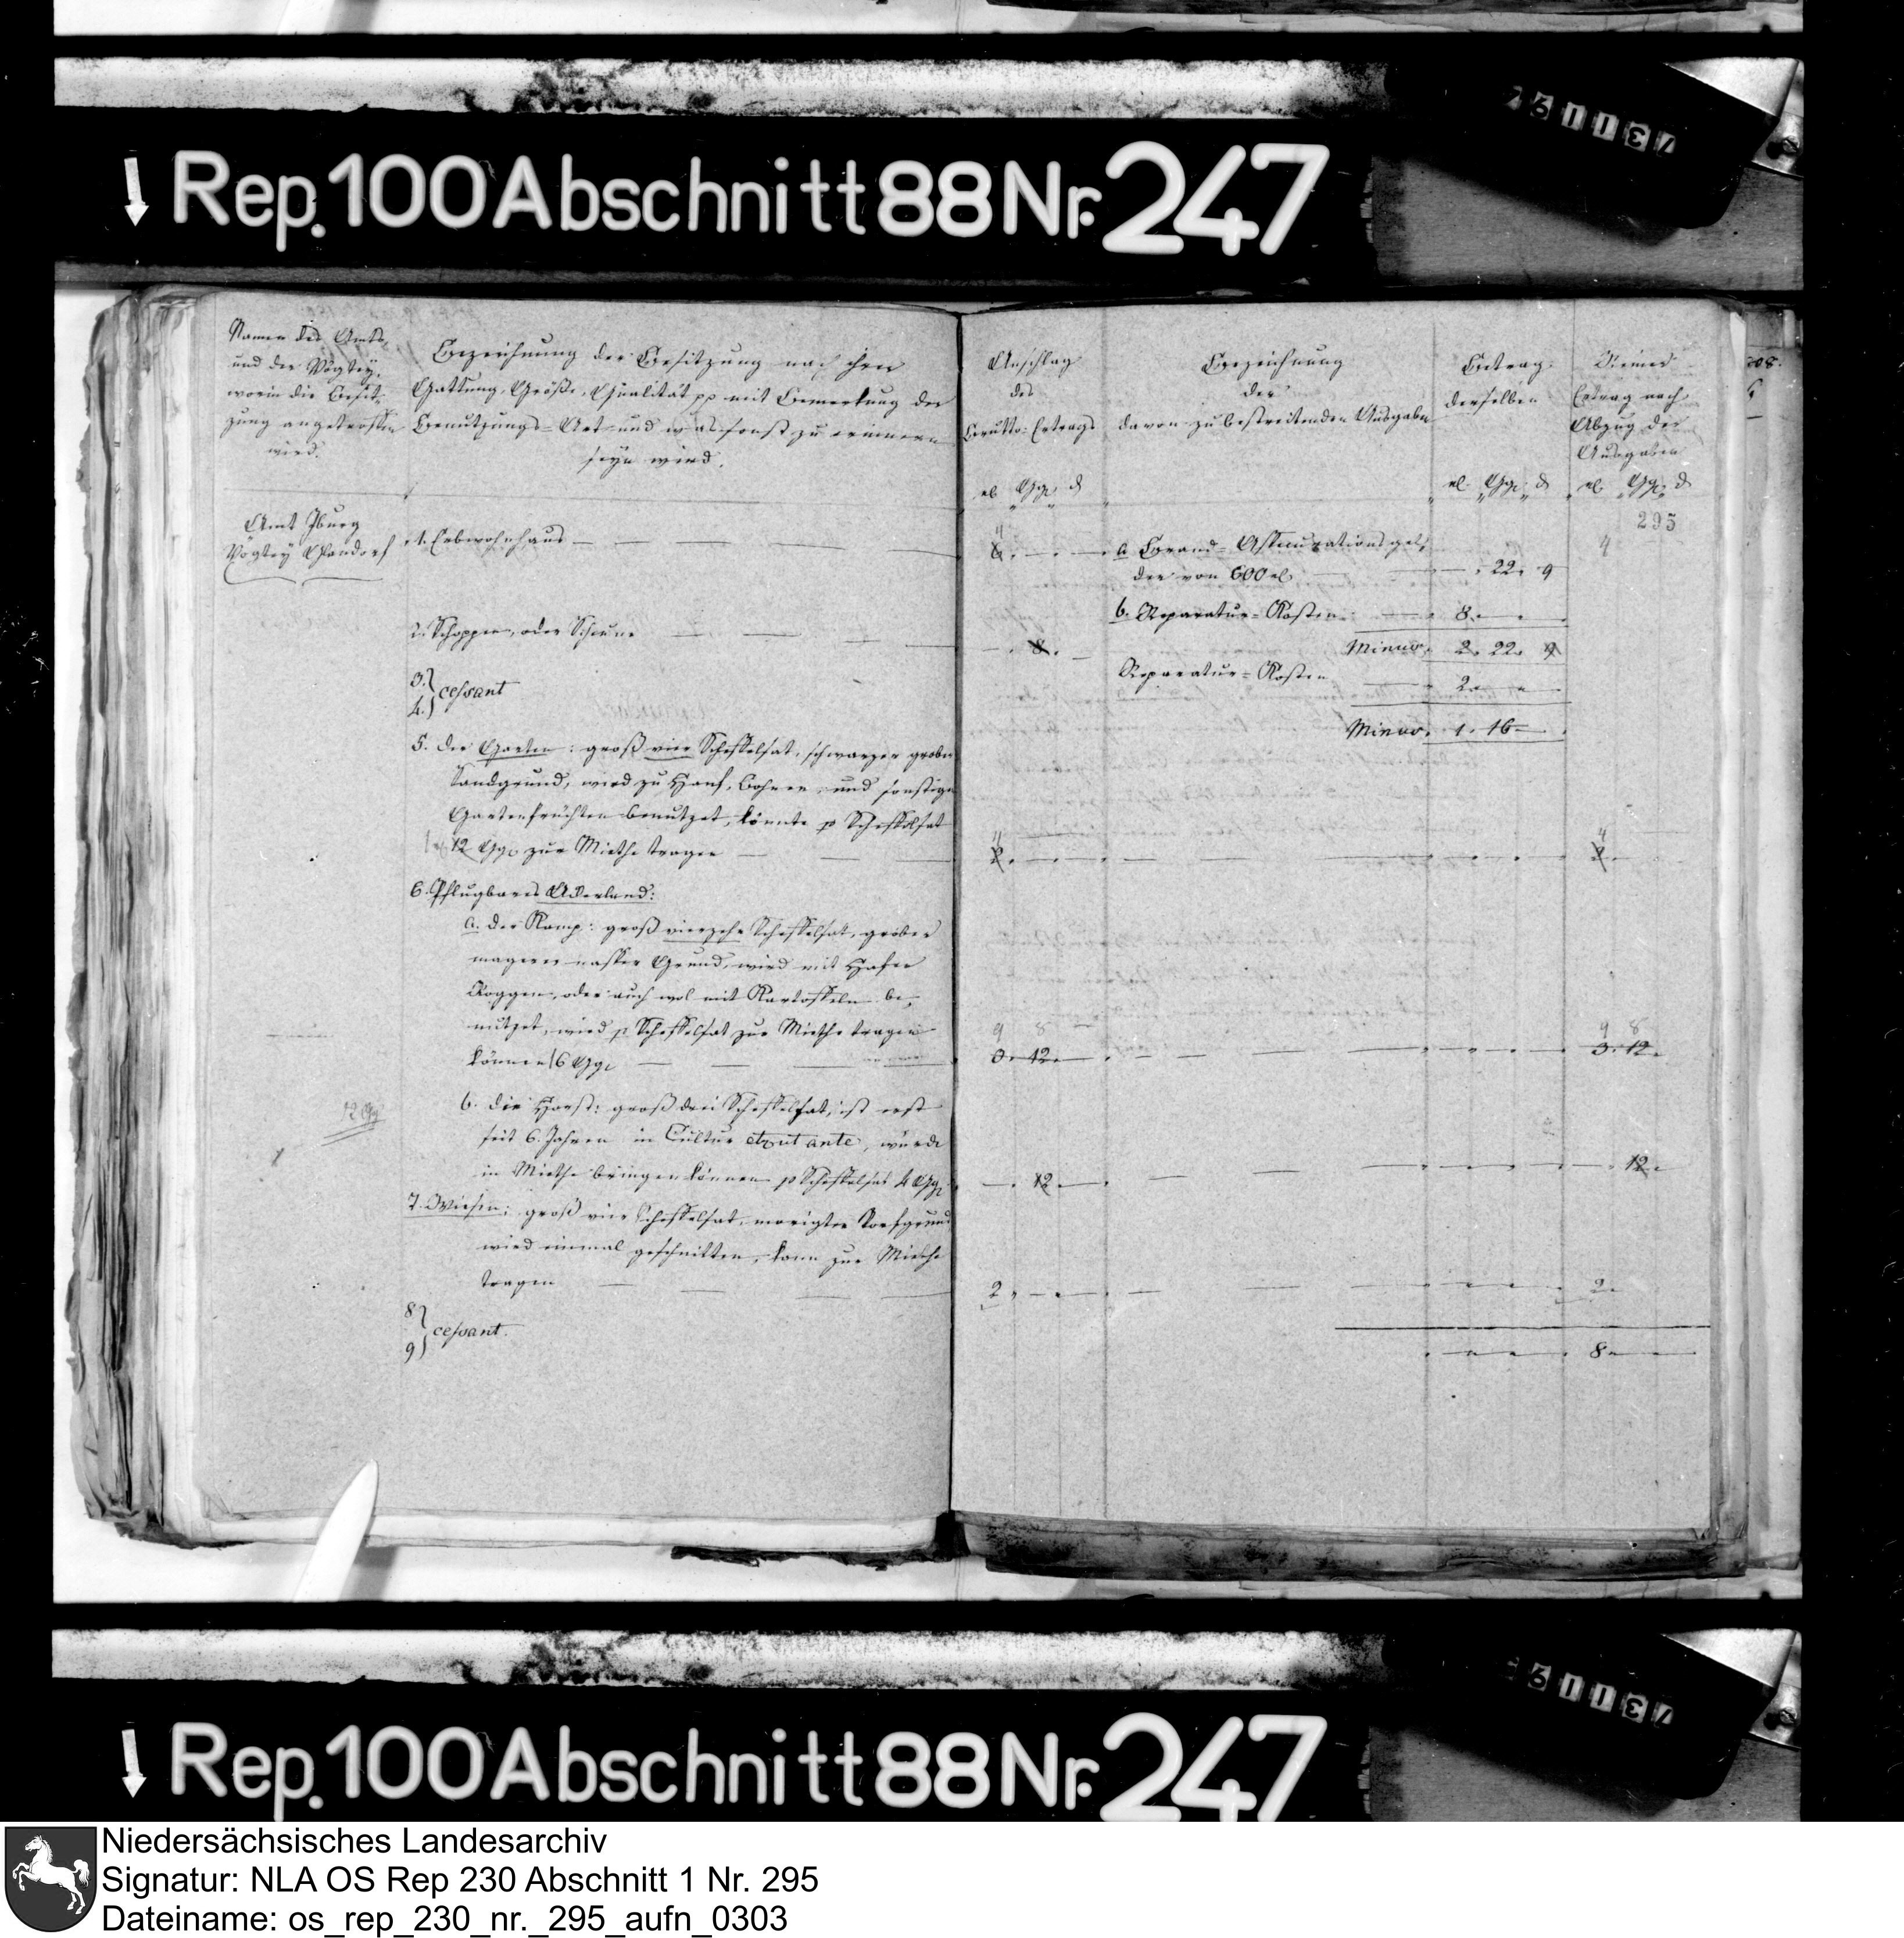 Rep. 100 Abschnitt 88 Nr. 247
Namen des Amts
und der Vogtey,
worin die Besit-
zung angetroffen
wird.
Bezeichnung der Besitzung nach ihrer
Gattung, Größe, Qualität pp mit Bemerkung der
Benutzungs-Art und was sonst zu erinnern
seyn wird.
Anschlag
des
Brutto-Ertrags
Bezeichnung
der
davon zu bestreitenden Ausgaben
Betrag
derselben
Reiner
Ertrag nach
Abzug der
Ausgaben
295
Amt Iburg
Vogtey
1. Erbwohnhaus
a. Brand-Assecurationsgel-
der von 600
22. 9
b. Reparatur-Kosten
8.
2. Schoppen, oder Scheune
8.
Minus. 2. 22. 9
3.
4. cessant
Reparatur-Kosten
2.
Minus. 1. 16
5. Der Garten: groß vier Scheffelsat, schwarzer grober
Sandgrund, wird zu Hanf, Bohnen, und sonstigen
Gartenfrüchten benutzet, könnte p Scheffelsat
12 Ggr zur Miethe tragen
6. Pflugbares Ackerland:
a. der Kamp: groß vierzehn Scheffelsat, grober
magerer nasser Grund, wird mit Hafer
Roggen, oder auch wol mit Kartoffeln be-
nutzet, wird p Scheffelsat zur Miethe tragen
können 6 Ggr
9 8
3. 12.
9 8
3. 12.
b. die Horst: groß drei Scheffelsat, ist erst
seit 6. Jahren in Cultur et ut ante, würde
in Miethe bringen können p Scheffelsat 4 Ggr
12
12.
7. Wiesen: groß vier Scheffelsat, morigter Torfgrund
wird einmal geschnitten, kann zur Miethe
tragen
2.
2.
8
9 cessant.
8
Rep. 100 Abschnitt 88 Nr. 247
Niedersächsisches Landesarchiv
Signatur: NLA OS Rep 230 Abschnitt 1 Nr. 295
Dateiname: os_rep_230_nr._295_aufn_0303